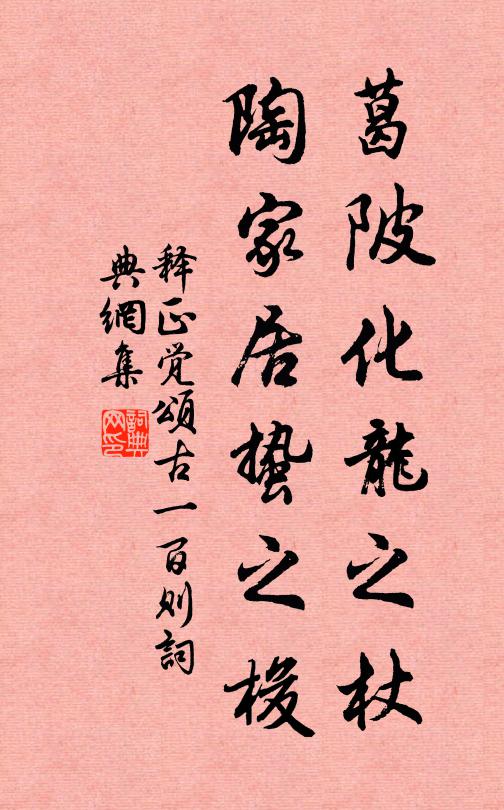 葛陂化龍之杖
陶家居蟄之梭
释正覚頌古一百则詞
典網集
詞典網印